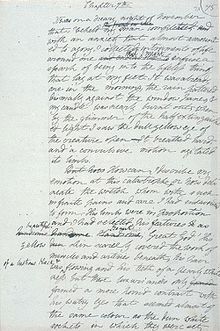 Chapter 7th
It was on a dreary night of November
that I beheld my man completed and
with an anxiety that almost amounted
to agony I collected instruments of life
around me that I might infuse a
spark of being into the lifeless thing
that lay at my feet. It was already
one in the morning, the rain pattered
dismally against the window panes &
my candle was nearly burnt out when
by the glimmer of the half extinguished
light I saw the dull yellow eye of
the creature open. It breathed hard
and a convulsive motion agitated
its limbs.
But how How can I describe my
emotion at this catastrophe; or how deli
neate the wretch whom with such
infinite pains and care I had endeavoured
to form. His limbs were in proportion
and I had selected his features as
handsome
yellow skin scarcely covered the work of
muscles and arteries beneath; his hair
was flowing and his teeth of a pearly white
ness but these luxuriances only
formed a more horrid contrast with
his watry eyes that seemed almost of
the same colour as the dun white
sockets in which they were set
of a lustrous black &